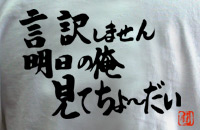 言訳しません
明日の俺
見てちょ〜だい